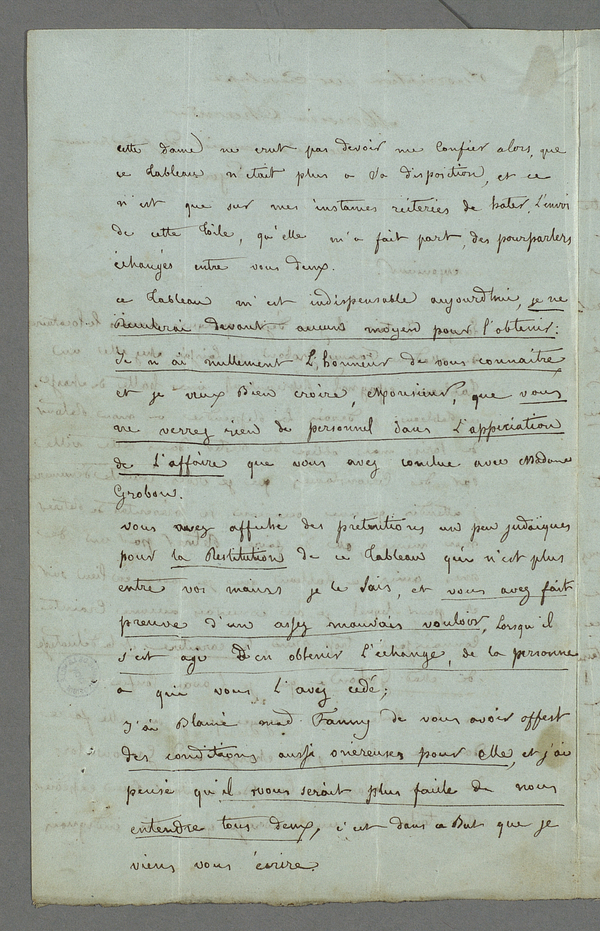 cette dame ne crut pas devoir me Confier alors, que
ce tableau n'était plus a sa disposition, et ce
n'est que sur mes instances réiterées de hater L'envoi
de cette toile, qu'elle m'a fait part, des pourparlers
échangés entre vous deux.
ce tableau m'est indispensable aujourdhui, je ne
Reculerai devant aucun moyen pour l'obtenir:
Je n'ai nullement L'honneur de vous connaitre
et je veux Bien croire, Monsieur, que vous
ne verrez rien de personnel dans L'appréciation
de L'affaire que vous avez conclue avec Madame
Grobon.
vous avez affiché des prétentions un peu judaïques
pour la Restitution de ce tableau qui n'est plus
entre vos mains je le sais, et vous avez fait
preuve d'un assez mauvais vouloir, Lorsqu'il
s'est agi D'en obtenir L'échange, de la personne
a qui vous L'avez cédé;
J'ai Blamé mad Fanny de vous avoir offert
des conditions aussi onéreuses pour elle, et j'ai
pensé qu'il vous serait plus facile de nous
entendre tous deux, c'est dans ce But que je
viens vous écrire.